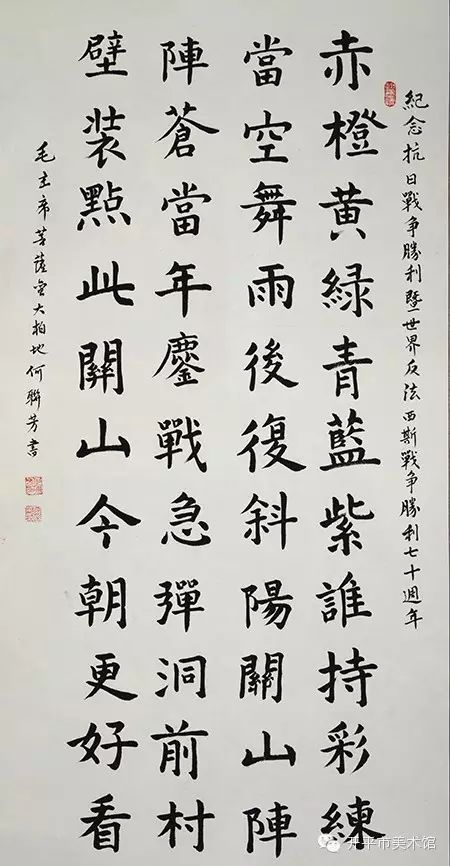 紀念抗日戰争勝利暨世界反法西斯戰争勝利七十週年
赤橙黄緑青藍紫誰持彩練
當空舞雨後復斜陽關山陣
陣蒼當年鏖戰急彈洞前村
壁装點此關山今朝更好看
毛主席菩薩蛮大柏地何聯芳書
开平市美术馆